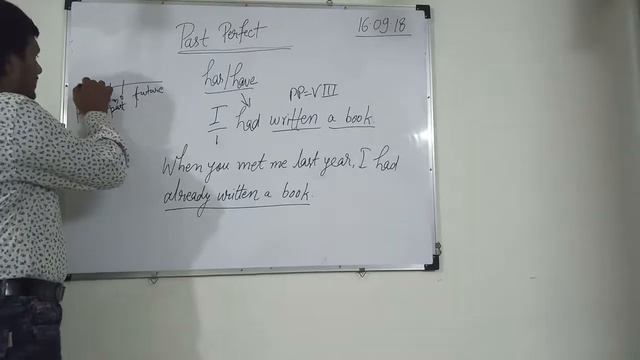 Past Perfect
16.09.18
has/have
PP=VIII
future
I had written a book.
When you met me last year, I had
already written a book.